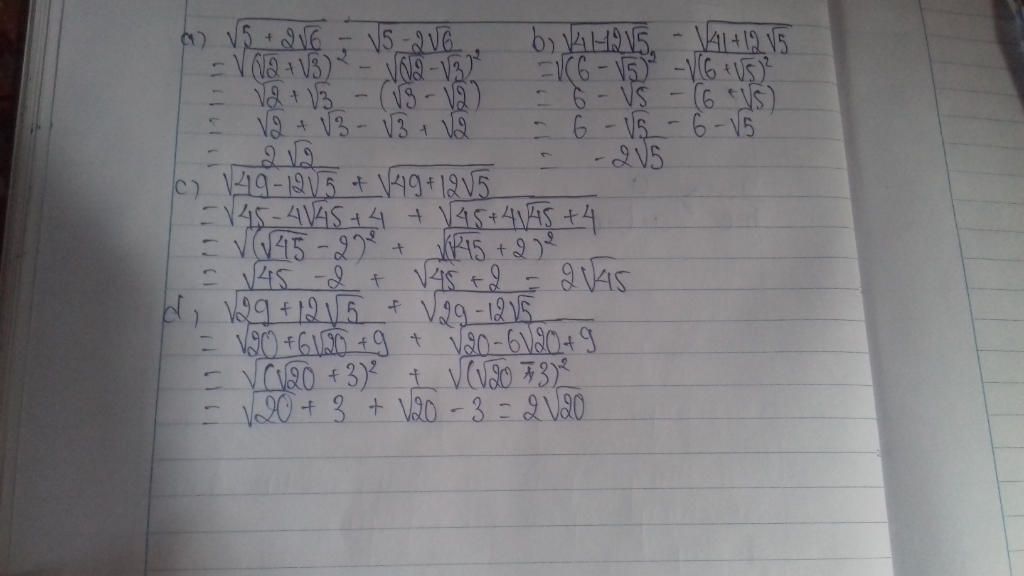 a) √(5 + 2√6) - √(5 - 2√6)
= √(√2 + √3)² - √(√2 - √3)²
= √2 + √3 - (√3 - √2)
= √2 + √3 - √3 + √2
= 2√2
b) √(41-12√5) - √(41+12√5)
= √(6 - √5)² - √(6 + √5)²
= 6 - √5 - (6 + √5)
= 6 - √5 - 6 - √5
= -2√5
c) √(49-12√5) + √(49+12√5)
= √(45-4√45+4) + √(45+4√45+4)
= √(√45 - 2)² + √(√45 + 2)²
= √45 - 2 + √45 + 2 = 2√45
d, √(29+12√5) + √(29-12√5)
= √(20+6√20+9) + √(20-6√20+9)
= √(√20 + 3)² + √(√20 - 3)²
= √20 + 3 + √20 - 3 = 2√20